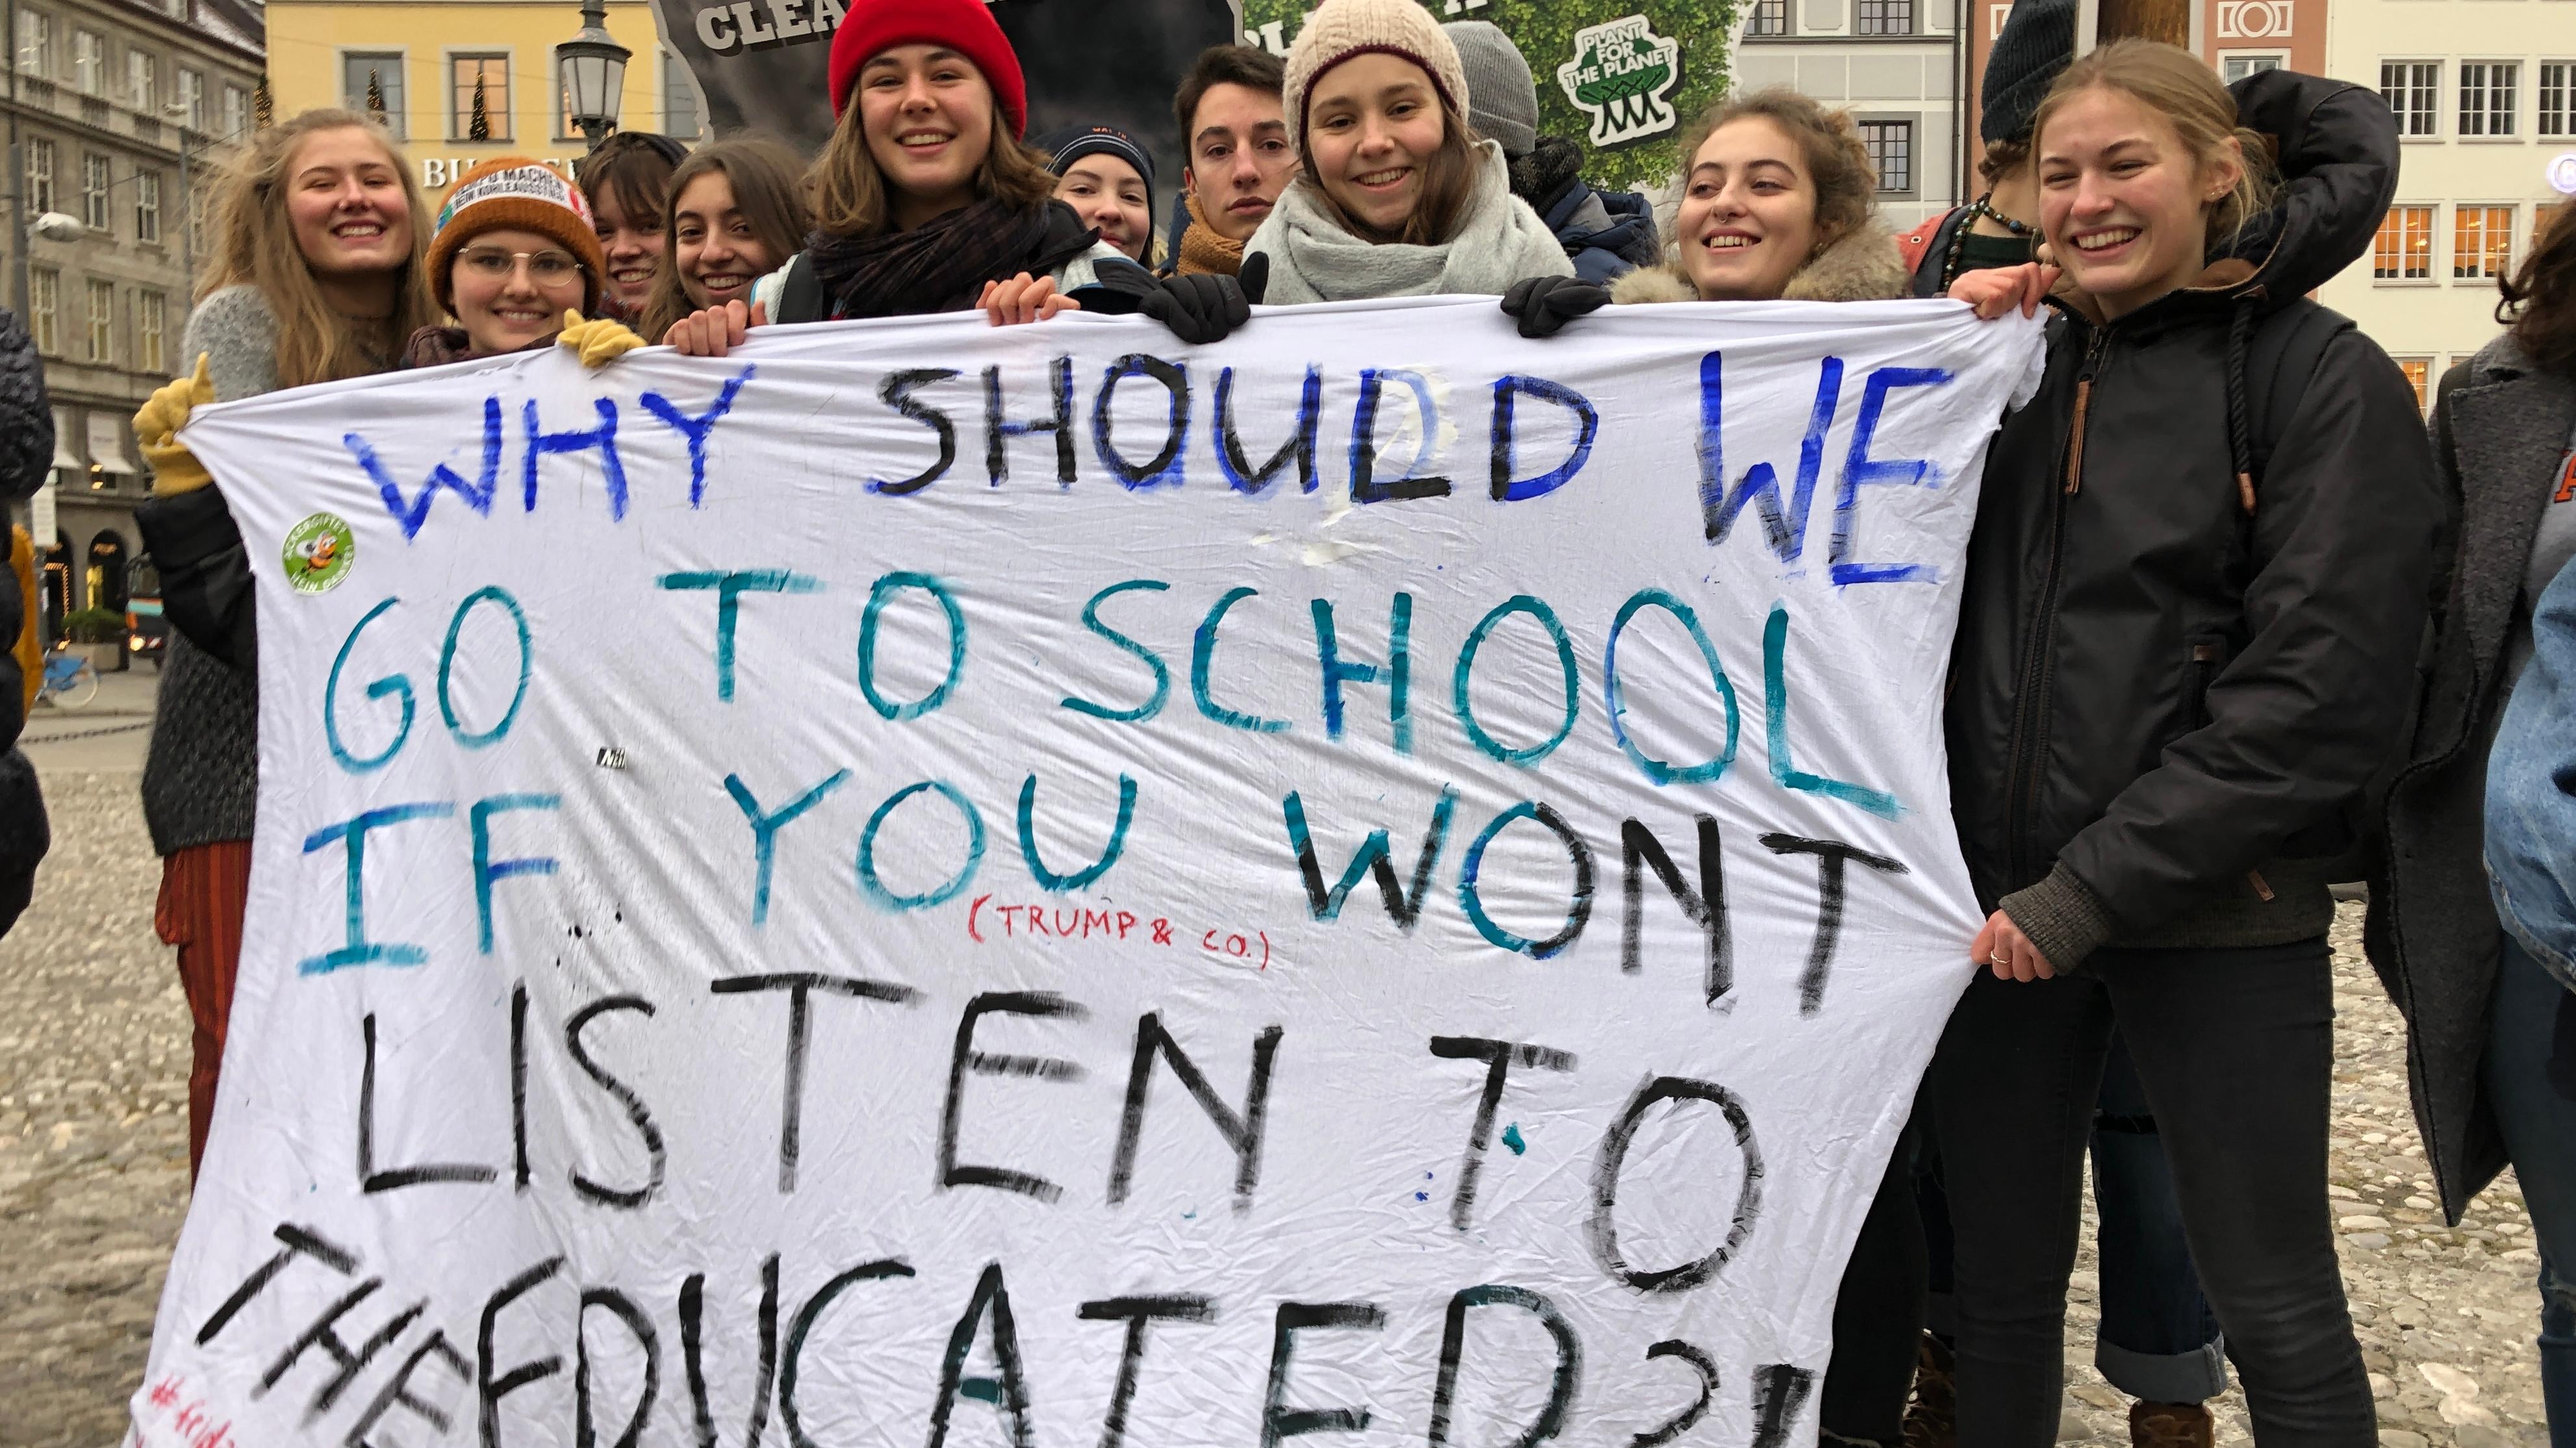 PLANT
FOR
THE PLANET
WHY SHOULD WE
GO TO SCHOOL
IF YOU WONT
(TRUMP & CO.)
LISTEN TO
THE EDUCATED?!
ACKERGIFTE?
NEIN DANKE!